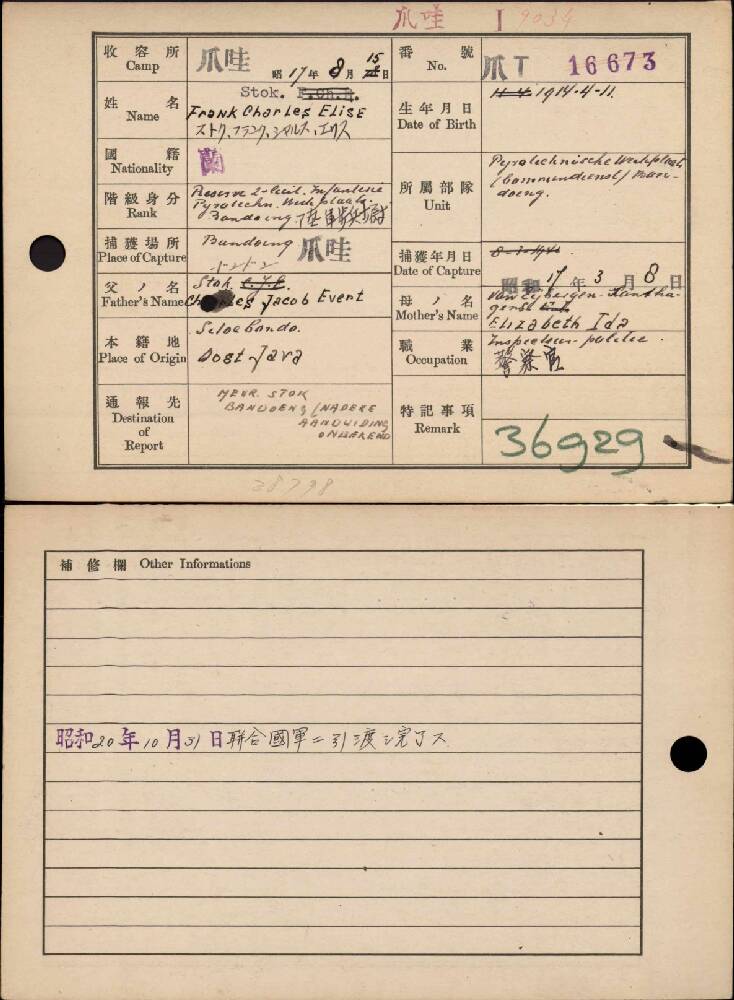 爪哇 I 9034
收容所 Camp 爪哇 昭17年8月15日
番號 No. 爪T 16673
姓名 Name Stok. F.Ch.E.
Frank Charles Elise
ストク,フランク,シャルス,エリス
生年月日 Date of Birth 11-4-1914-4-11.
國籍 Nationality 蘭
階級身分 Rank Reserve 2e Luit. Infanterie
Pyrotechn. Werkplaats
Bandoeng.
所屬部隊 Unit Pyrotechnische Werkplaats
Bandoeng.
捕獲場所 Place of Capture Bandoeng 爪哇
捕獲年月日 Date of Capture 8-3-1942
昭和17年3月8日
父ノ名 Father's Name Stok
Charles Jacob Evert
母ノ名 Mother's Name
Elizabeth Ida
本籍地 Place of Origin Sitoebondo.
Oost-Java
職業 Occupation Inspecteur-politie
警察官
通報先 Destination of Report MEVR. STOK
BANDOENG (NADERE
AANDUIDING
ONBEKEND
特記事項 Remark 36929
38798
補修欄 Other Informations
昭和20年10月31日聯合國軍ニ引渡シ完了ス